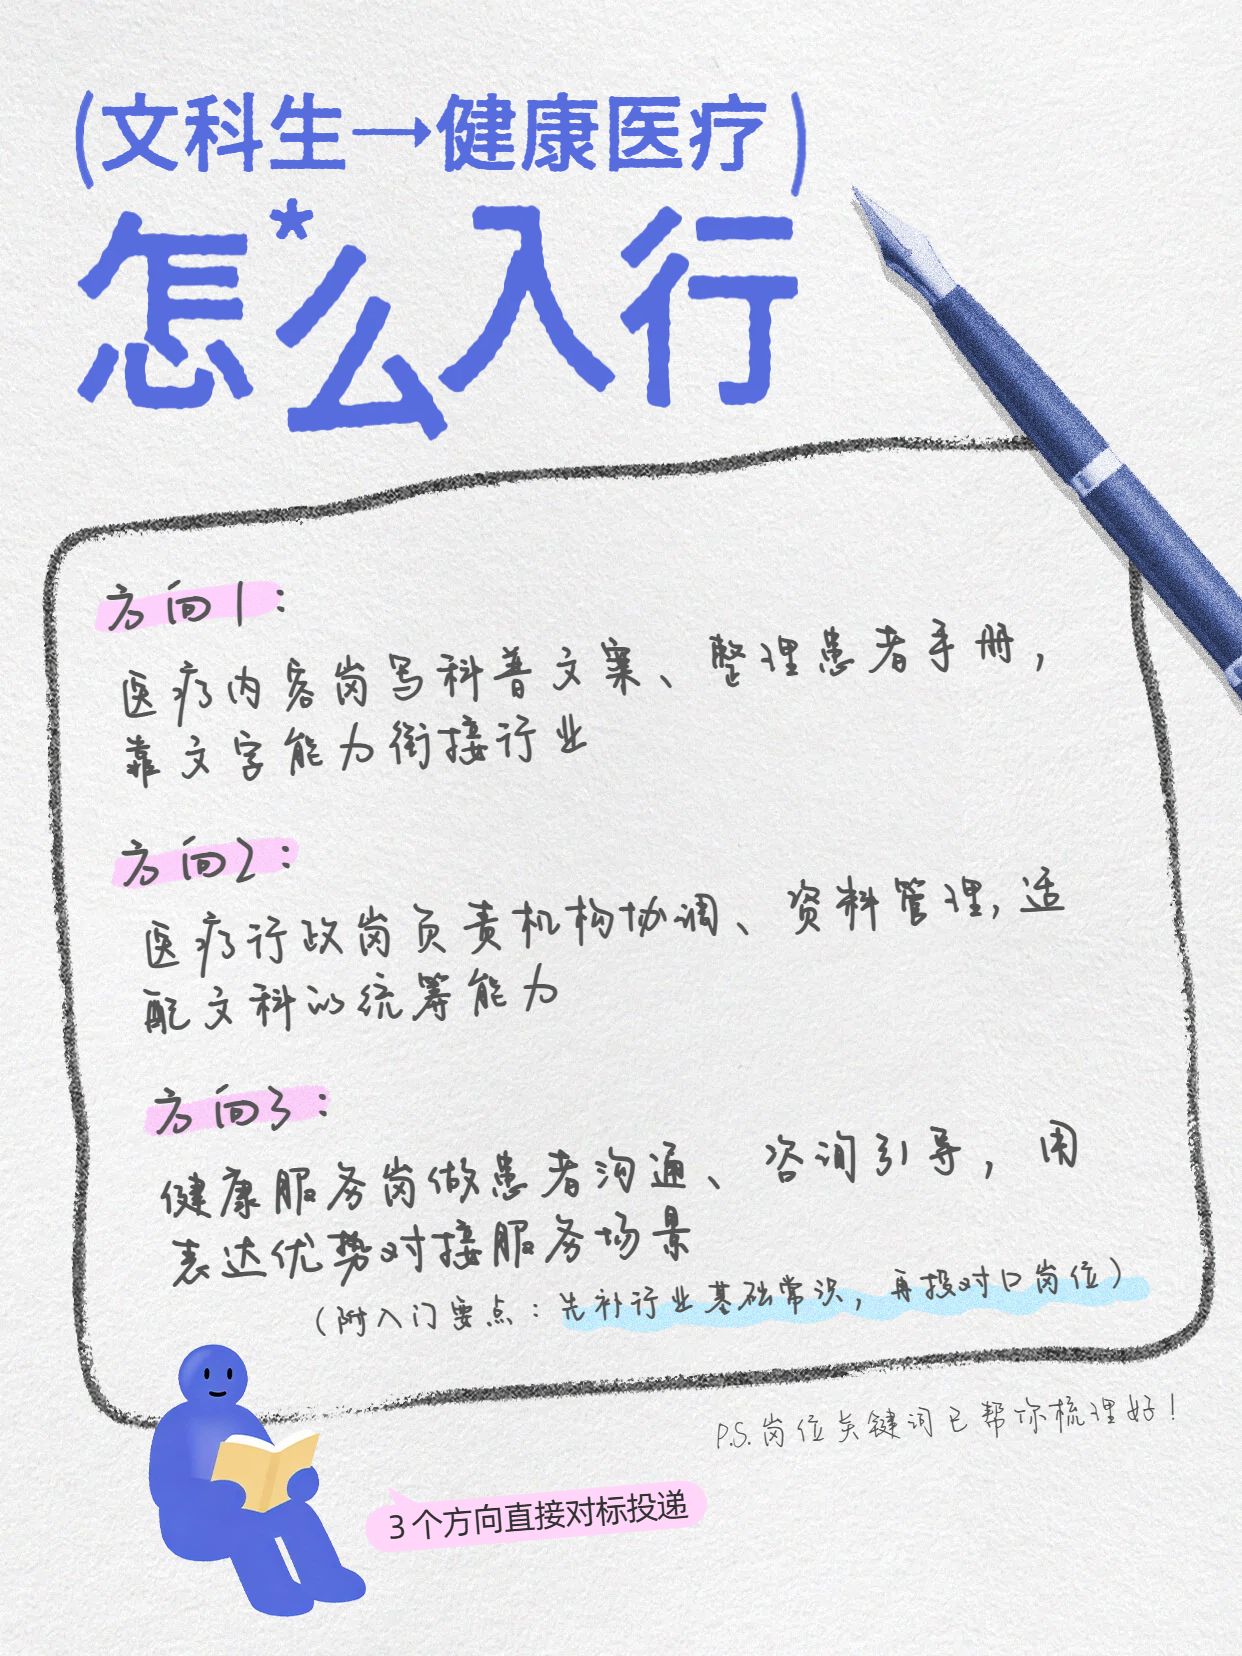 (文科生→健康医疗)
怎*么入行
方向1：
医疗内容岗写科普文案、整理患者手册，
靠文字能力衔接行业
方向2：
医疗行政岗负责机构协调、资料管理,适
配文科的统筹能力
方向3：
健康服务岗做患者沟通、咨询引导，用
表达优势对接服务场景
(附入门要点：先补行业基础常识，再投对口岗位)
P.S.岗位关键词已帮你梳理好！
3个方向直接对标投递